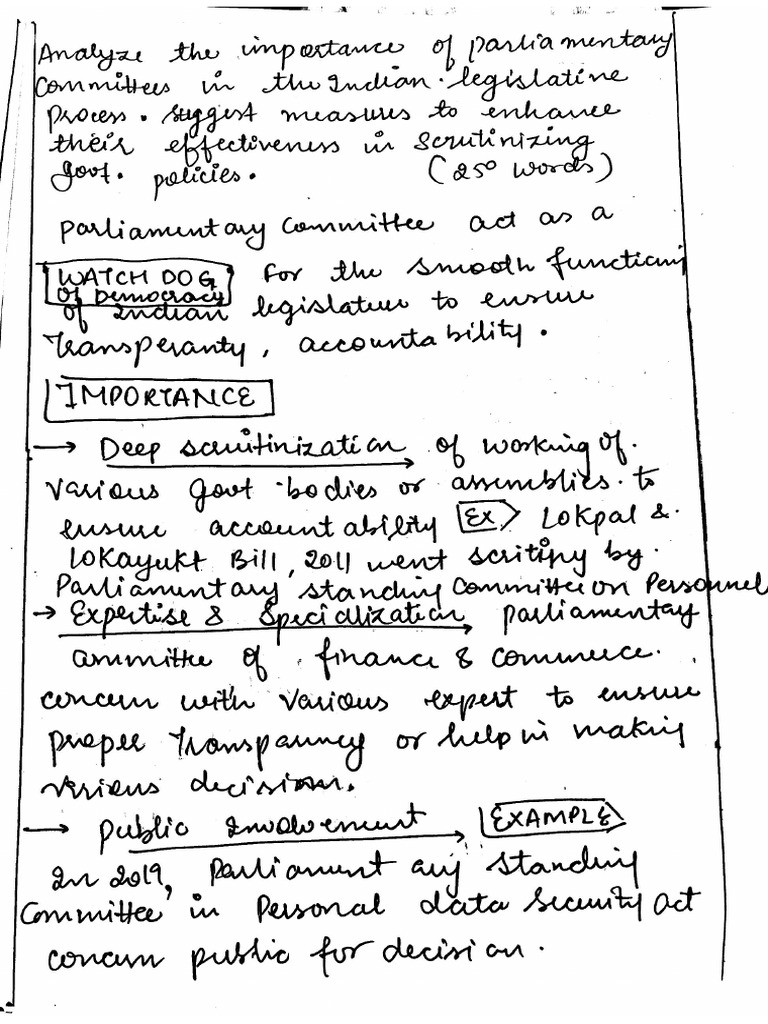 Analyze the importance of parliamentary
Committees in the Indian legislative
process. Suggest measures to enhance
their effectiveness in scrutinizing
govt. policies. (250 words)
Parliamentary Committee act as a
WATCH DOG of Democracy for the smooth functioning
of Indian legislature to ensure
transperanty, accountability.
IMPORTANCE
→ Deep scrutinization of working of
various govt bodies or assemblies to
ensure accountability Ex Lokpal &
Lokayukt Bill, 2011 went scritiny by
Parliamentary standing Committee on Personnel
→ Expertise & Specialization parliamentary
committee of finance & commerce
concern with various expert to ensure
proper transparency or help in making
various decision.
→ Public Involvement EXAMPLE
In 2019, Parliamentary standing
Committee in Personal data security act
concern public for decision.